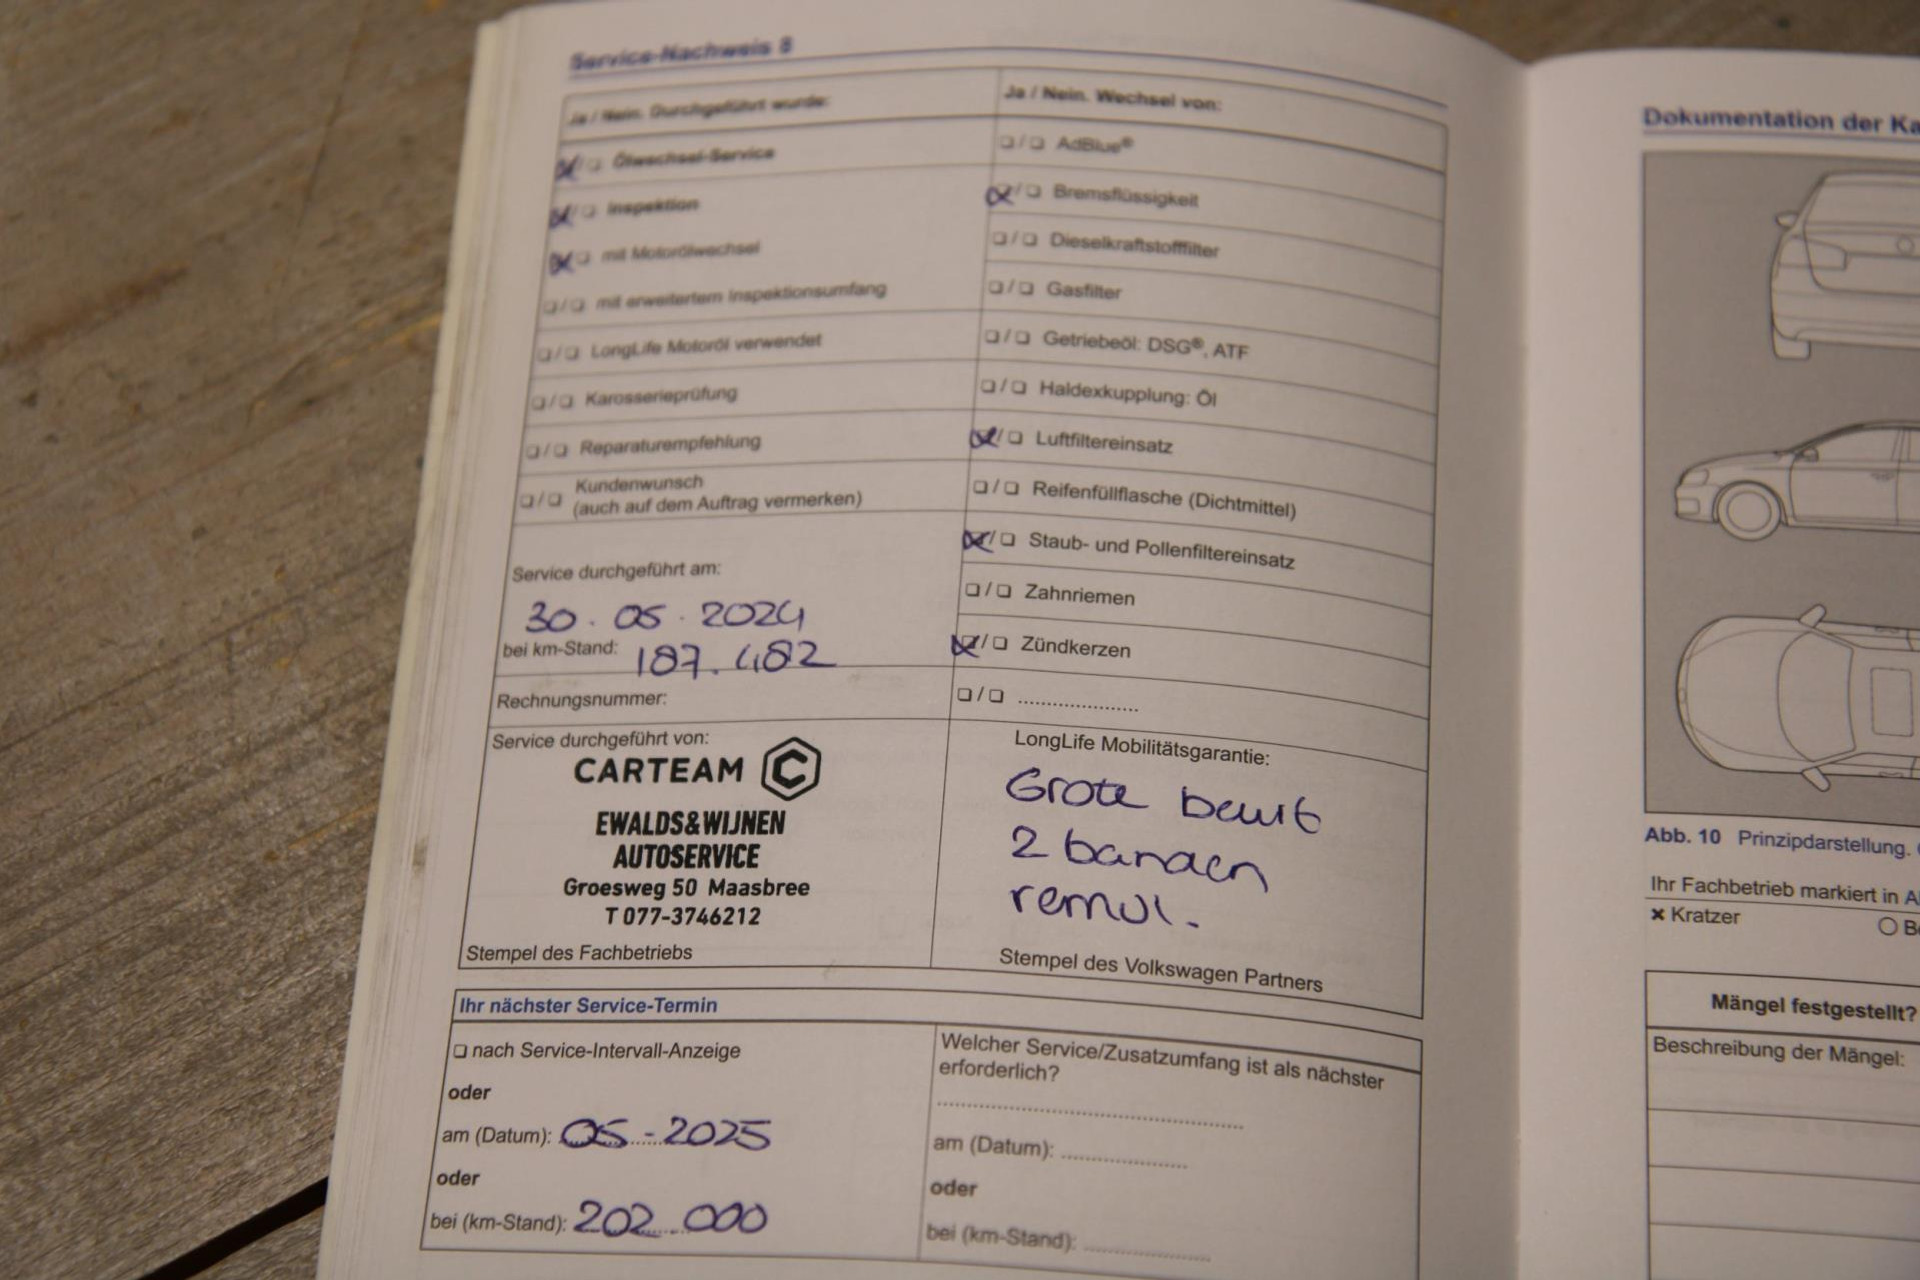 Service-Nachweis 8
Ja / Nein. Durchgeführt wurde:
Ölwechsel-Service
Inspektion
mit Motorölwechsel
mit erweitertem Inspektionsumfang
LongLife Motoröl verwendet
Karosserieprüfung
Reparaturempfehlung
Kundenwunsch
(auch auf dem Auftrag vermerken)
Service durchgeführt am:
30.05.2024
bei km-Stand: 187.482
Rechnungsnummer:
Service durchgeführt von:
CARTEAM C
EWALDS&WIJNEN
AUTOSERVICE
Groesweg 50 Maasbree
T 077-3746212
Stempel des Fachbetriebs
Ja / Nein. Wechsel von:
AdBlue®
Bremsflüssigkeit
Dieselkraftstofffilter
Gasfilter
Getriebeöl: DSG®, ATF
Haldexkupplung: Öl
Luftfiltereinsatz
Reifenfüllflasche (Dichtmittel)
Staub- und Pollenfiltereinsatz
Zahnriemen
Zündkerzen
LongLife Mobilitätsgarantie:
Grote beurt
2 banden
remvl.
Stempel des Volkswagen Partners
Ihr nächster Service-Termin
nach Service-Intervall-Anzeige
oder
am (Datum): 05-2025
oder
bei (km-Stand): 202.000
Welcher Service/Zusatzumfang ist als nächster
erforderlich?
am (Datum):
oder
bei (km-Stand):
Dokumentation der Ka
Abb. 10 Prinzipdarstellung.
Ihr Fachbetrieb markiert in A
× Kratzer
Mängel festgestellt?
Beschreibung der Mängel: